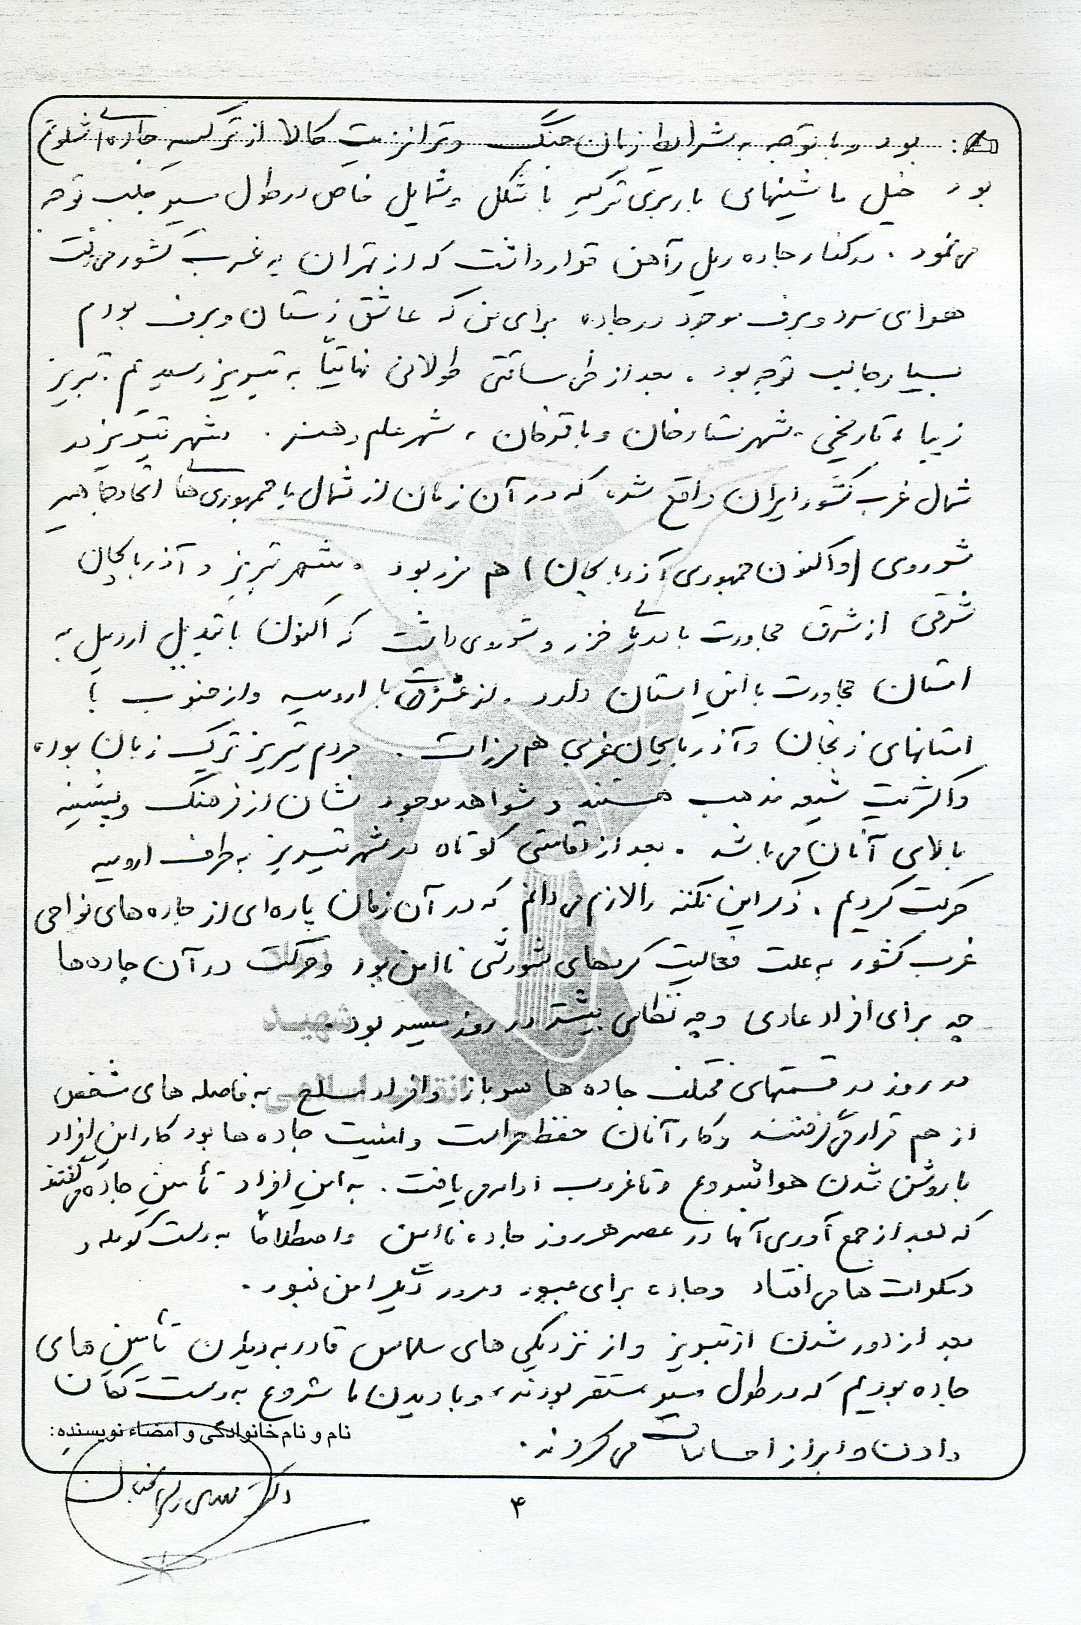 بود و با توجه به شرایط زمان جنگ و ترانزیت کالا از ترکیه جاده‌ای شلوغ
بود خیل ماشینهای باربری ترکیه با شکل و شمایل خاص در طول مسیر جلب توجه
می نمود . در کنار جاده ریل راهن قرار داشت که از تهران به غرب کشور می رفت
هوای سرد و برف موجود در جاده برای من که عاشق زمستان و برف بودم
بسیار جالب توجه بود . بعد از طی مسافتی طولانی نهایتاً به تبریز رسیدیم . تبریز
زیبا ، تاریخی ، شهر ستارخان و باقرخان ، شهر علم و هنر . شهر تبریز در
شمال غرب کشور ایران واقع شده که در آن زمان از شمال با جمهوری‌های اتحاد جماهیر
شوروی (و اکنون جمهوری آذربایجان) هم مرز بود . شهر تبریز و آذربایجان
شرقی از شرق مجاورت با دریای خزر و شوروی داشت که اکنون با تبدیل اردبیل به
استان مجاورت با این استان دارد . از با ارومیه و از جنوب با
استانهای زنجان و آذربایجان غربی هم مرز است . مردم تبریز ترک زبان بوده
و اکثریت شیعه مذهب هستند و شواهد موجود نشان از فرهنگ و پیشینه
بالای آنان می باشد . بعد از اقامتی کوتاه در شهر تبریز به طرف ارومیه
حرکت کردیم . ذکر این نکته را لازم می دانم که در آن زمان پاره‌ای از جاده های نواحی
غرب کشور به علت فعالیت گروههای شورشی ناامن بود و حرکت در آن جاده‌ها
چه برای افراد عادی و چه نظامی بیشتر در روز میسر بود .
در روز در قسمتهای مختلف جاده ها سرباز و افراد مسلح به فاصله های مشخص
از هم قرار می گرفتند و کار آنان حفظ حراست و امنیت جاده ها بود کار این افراد
با روشن شدن هوا شروع و تا غروب ادامه می یافت . به این افراد تأمین جاده می گفتند
که بعد از جمع آوری آنها در عصر هر روز جاده ناامن و اصطلاحاً به دست کومله و
دمکرات ها می افتاد و جاده برای عبور و مرور دیگر امن نبود .
بعد از دور شدن از تبریز و از نزدیکی های سلماس قادر به دیدن تأمین های
جاده بودیم که در طول مسیر مستقر بودند و با دیدن ما شروع به دست تکان
دادن و ابراز احساسات می کردند .
نام و نام خانوادگی و امضاء نویسنده:
دکتر
۴
شهید
انقلاب اسلامی